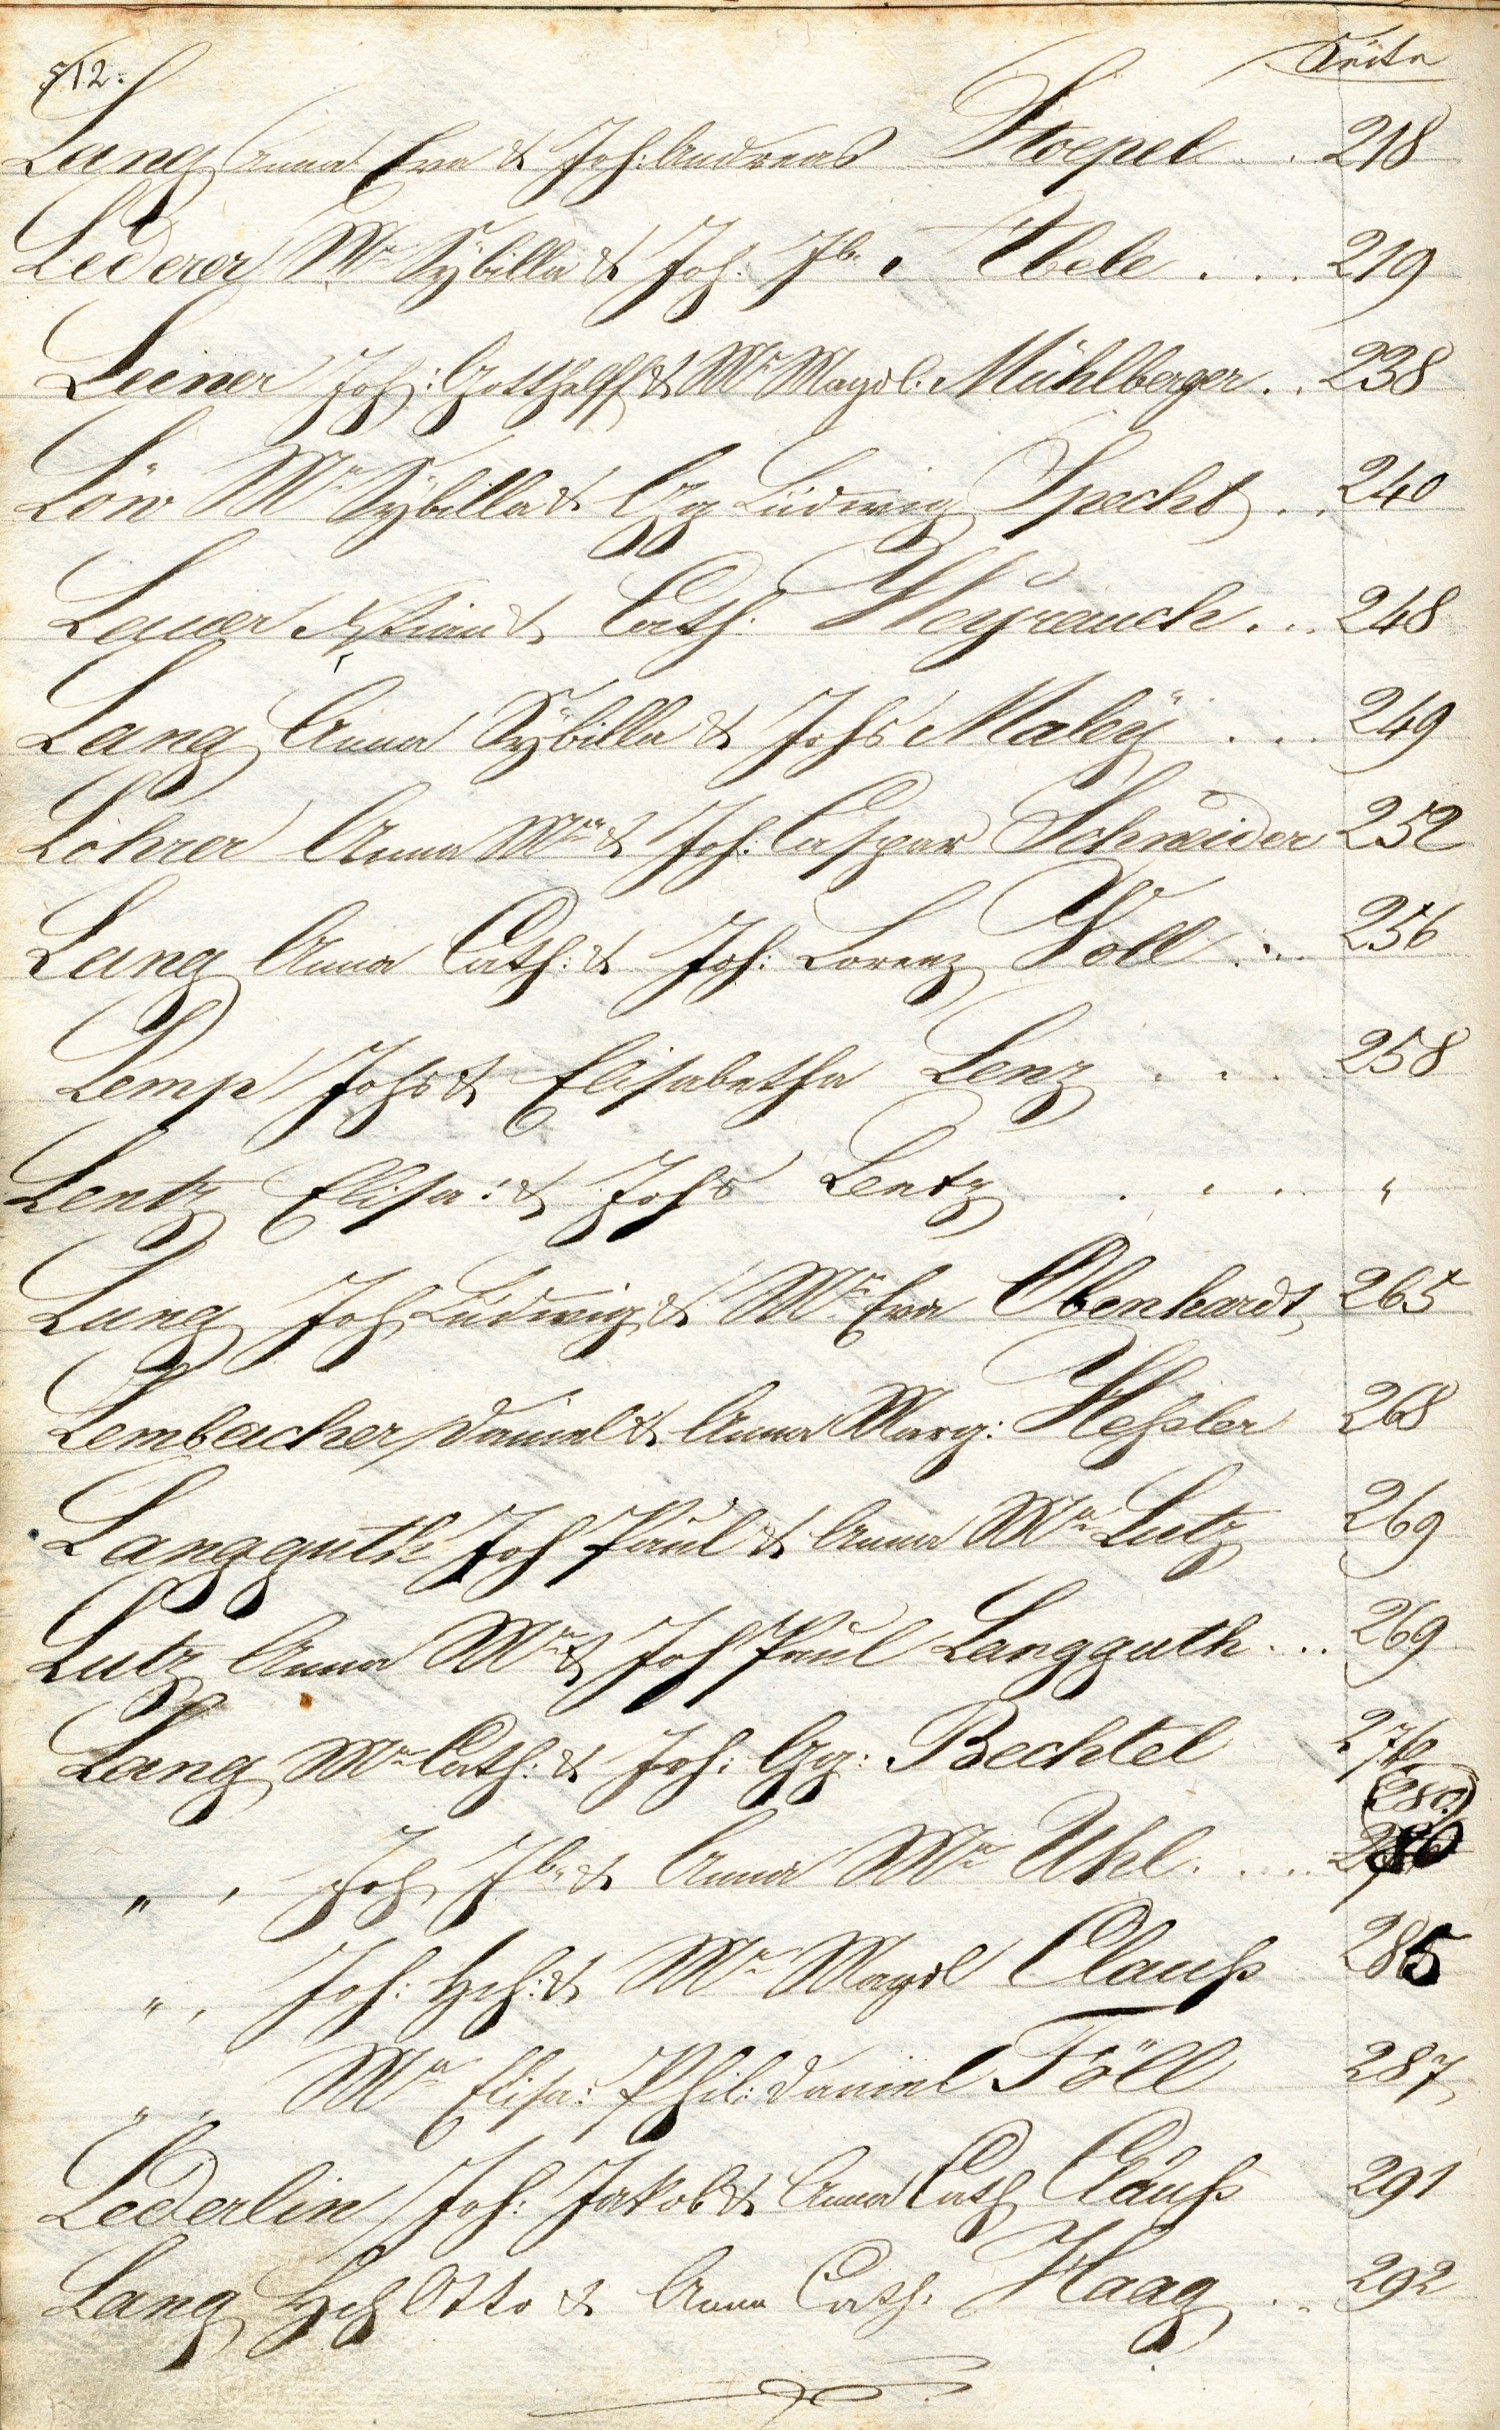 512.
Seite
Lang Anna Eva & Joh: Andreas Stoepel . . 218
Lederer Mr Sÿbilla & Joh. Jb. Ebele . . . 219
Leiner Joh: Gotthelff & Mr Magdl. Mühlberger . . 238
Löw Mr Sÿbilla & Gg Ludwig Specht . . . 240
Lauer & Cath. Weyrauch . . . 248
Lang Anna Sÿbilla & Johs Maleÿ . . . 249
Löhrer Anna Mra & Joh: Caspar Schneider 252
Lang Anna Cath: & Joh: Lorenz Voll . . . 256
Lemp Johs & Elisabetha Lenz . . . 258
Lentz Elisa: & Johs Lentz . . . "
Lang Joh Ludwig & Mr Eva Obenhardt 265
Lembacher Daniel & Anna Marg: Heßler 268
Langguth Joh Paul & Anna Mra Lutz 269
Lutz Anna Mra & Joh Paul Langguth . . . 269
Lang Mr Cath: & Joh: Gg: Bechtel 276
280.
" , Joh Jb. & Anna Mra Uhl . . . . 280
" , Joh: Hch: & Mr Magdl Clauß 285
" , Mra Elisa: Phil: Daniel Föll 287
Lederlin Joh: Jakob & Anna Cath Clauß 291
Lang Hch Otto & Anna Cath. Haag . . 292